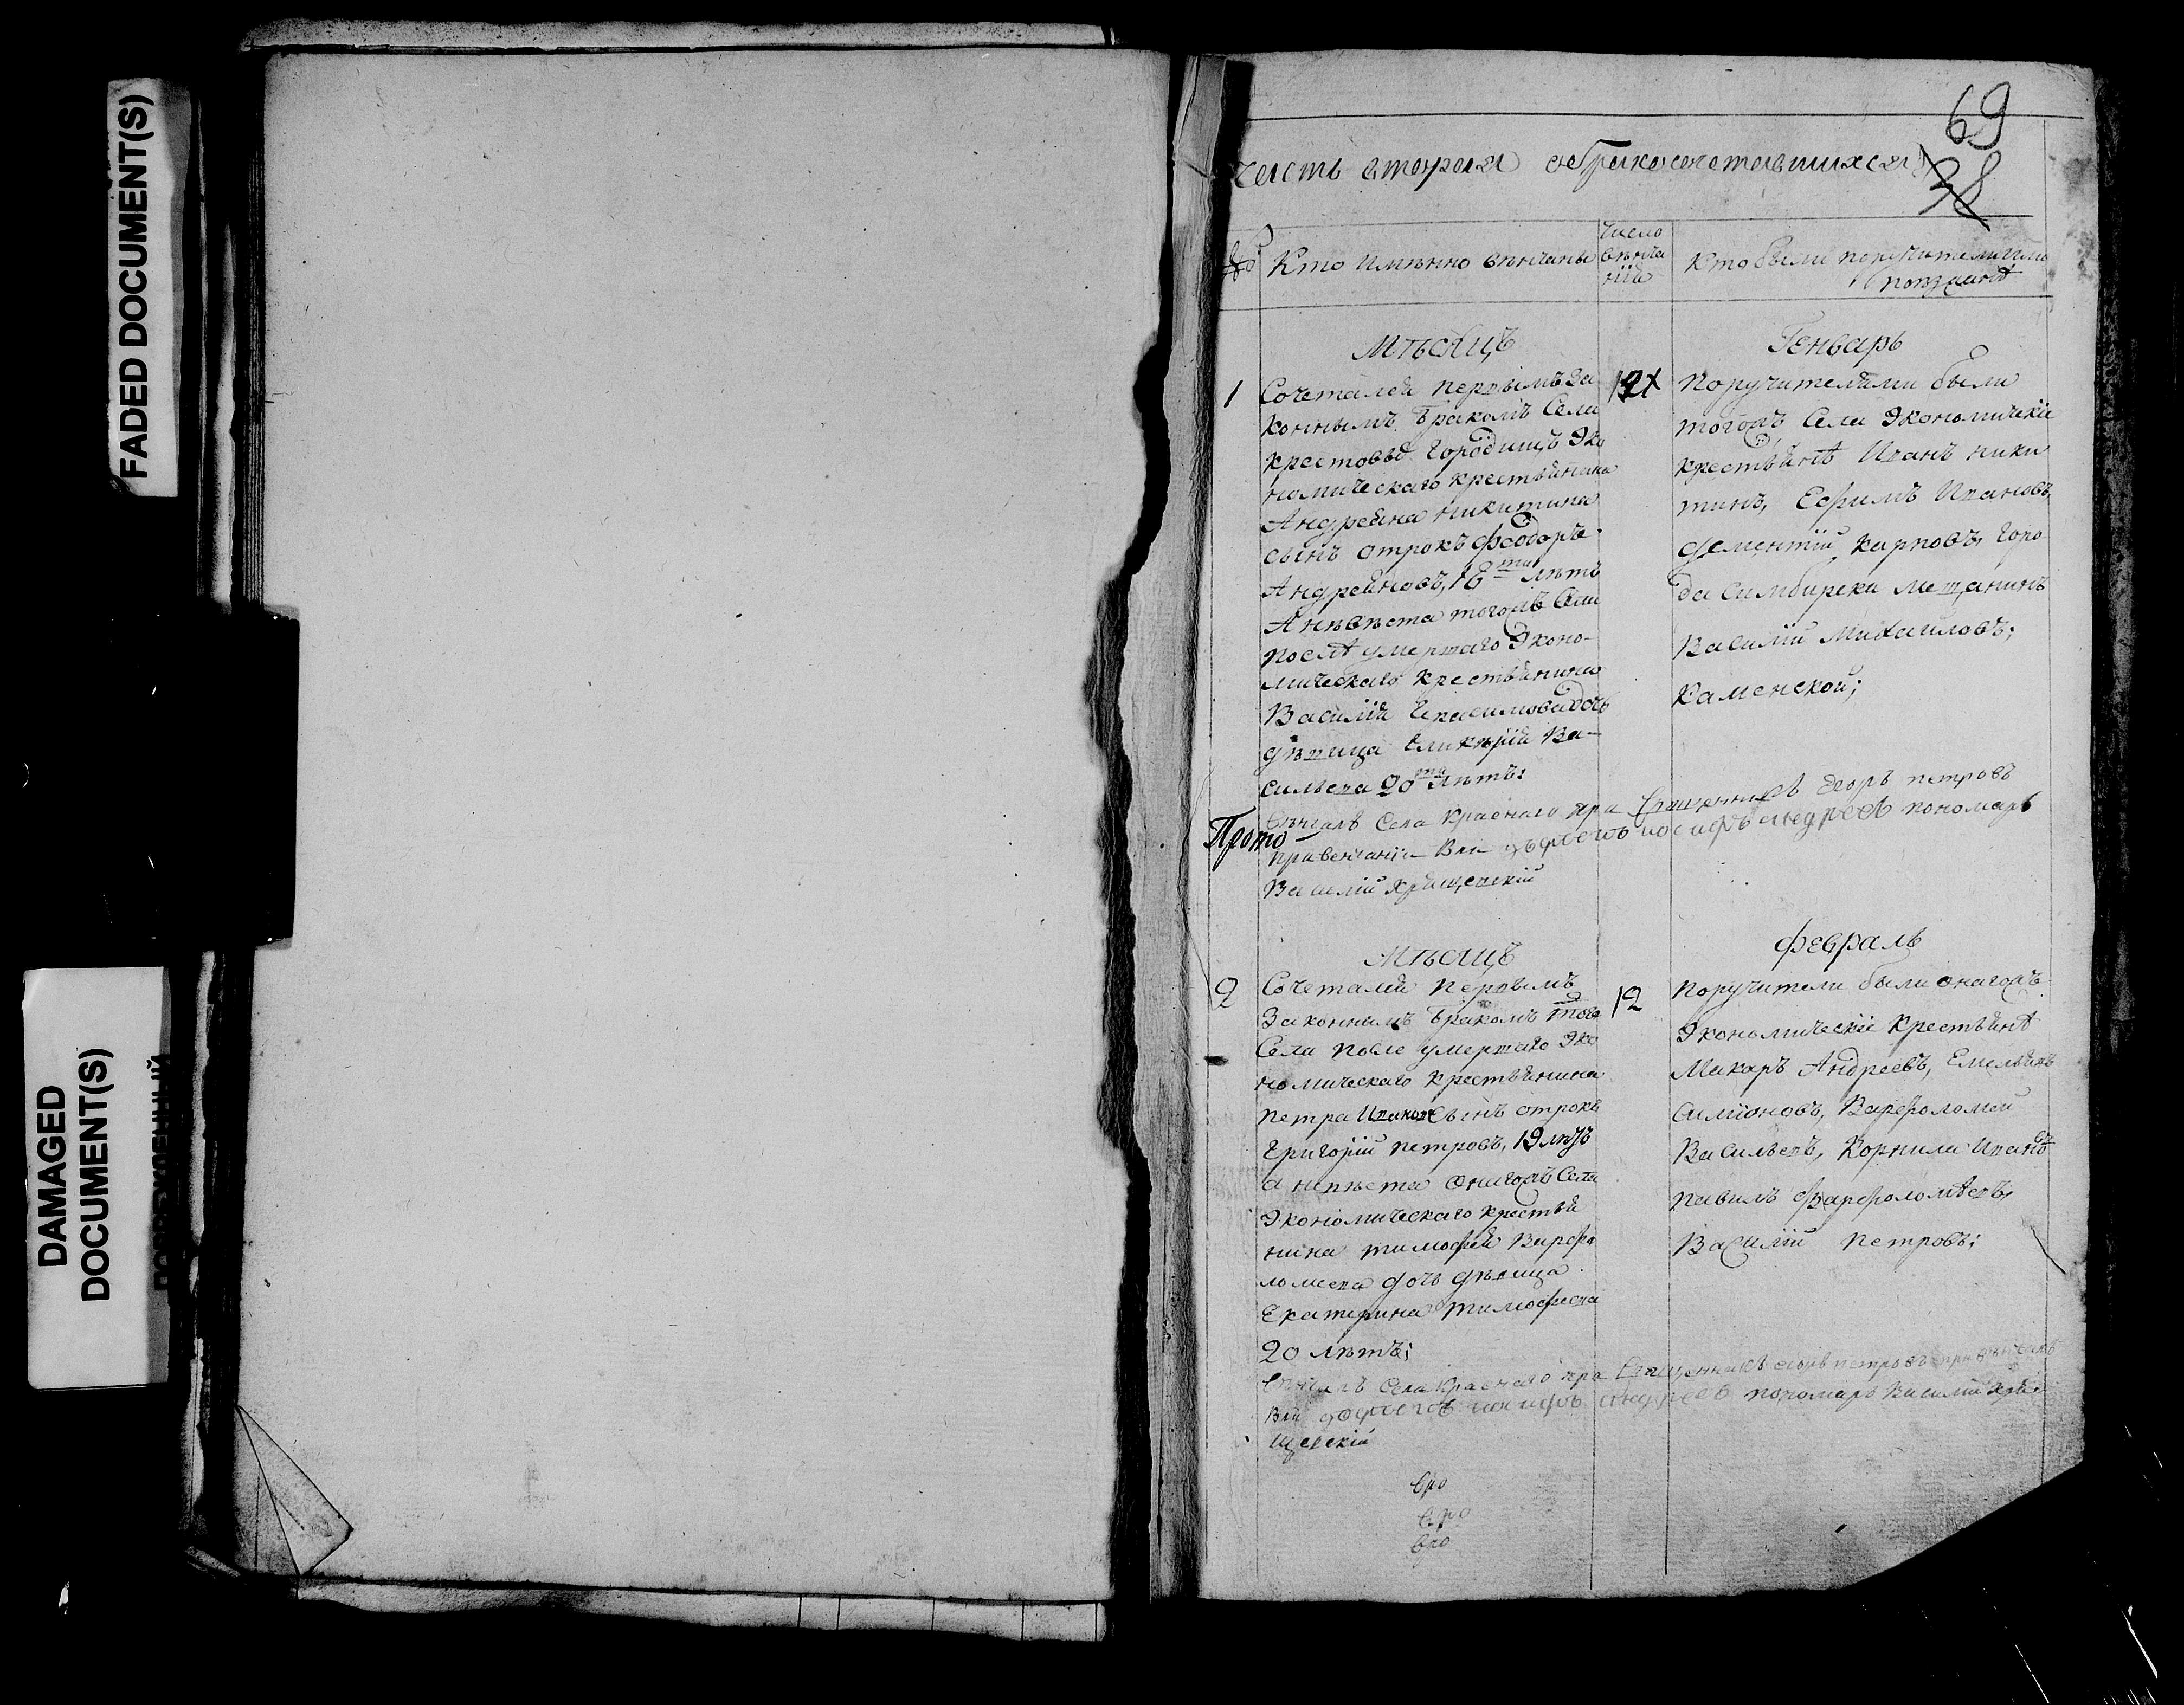 FADED DOCUMENT(S)
DAMAGED
DOCUMENT(S)
69
38
Часть вторая о бракосочетавшихся
№
Кто имянно венчаны
Число
венча
нїя
Кто были поручители или
поѣзжанѣ
Мѣсяцъ
Генварь
1
Сочетался первымъ за
коннымъ бракомъ Села
Крестовые Городищъ Эко
номического крестьянина
Андреяна Никитина
сынъ отрокъ Феодоръ
Андреяновъ, 18 лѣтъ
А невѣста тогожъ Села
послѣ умершаго Эконо-
мическаго крестьянина
Василїя Герасимова дочь
дѣвица Гликерїя Ва-
сильева 20 лѣтъ:
12
Поручителями были
тогожъ Села Экономическїе
крестьянѣ Иванъ Ники
тинъ, Ефимъ Ивановъ,
Дементїй Карповъ, Горо
да Симбирска мещанинъ
Василїй Михаиловъ;
Каменской;
Прото
Венчалъ Села Краснаго Священникъ Егоръ Петровъ
при венчанїи были Иосифъ Андреевъ пономарь
Василїй Хрящевскїй
Мѣсяцъ
Февраль
2
Сочетался первымъ
Законнымъ бракомъ того
Села после умершаго Эко
номическаго крестьянина
Петра Иванова сынъ отрокъ
Григорїй Петровъ, 19 лѣтъ
а невѣста онагожъ Села
Экономическаго крестья
нина Тимофея Варфо
ломеева дочь дѣвица
Екатерина Тимофеева
20 лѣтъ;
12
Поручители были онагожъ
Экономическїе крестьянѣ
Макаръ Андреевъ, Емельянъ
Симїоновъ, Варфоломей
Васильевъ, Корнила Ивановъ
Павилъ Варфоломѣевъ,
Василїй Петровъ;
Венчалъ Села Краснаго Священникъ Егоръ Петровъ при венчанїи
были Иосифъ Андреевъ пономарь Василїй Хря
щевскїй